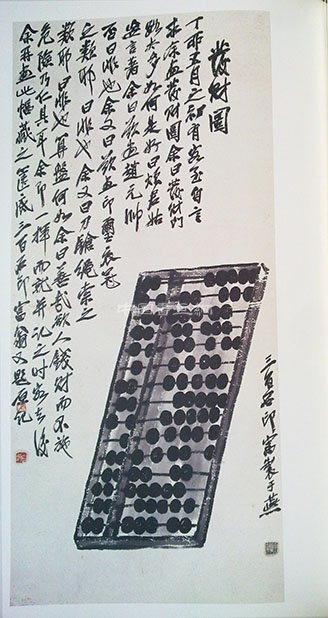 發財圖
丁卯五月之初有客至自言
求余畫發財圖余曰發財門
路太多如何是好曰煩君姑
妄言著余曰欲畫趙元帥
否曰非也余又曰欲畫印璽衣冠
之類耶曰非也余又曰刀槍繩索之
類耶曰非也算盤何如余曰善哉欲人錢財而不施
危險乃仁具耳余即一揮而就并記之時客去後
余再畫此幅藏之篋底三百石印富翁又題原記
三百石印富于燕